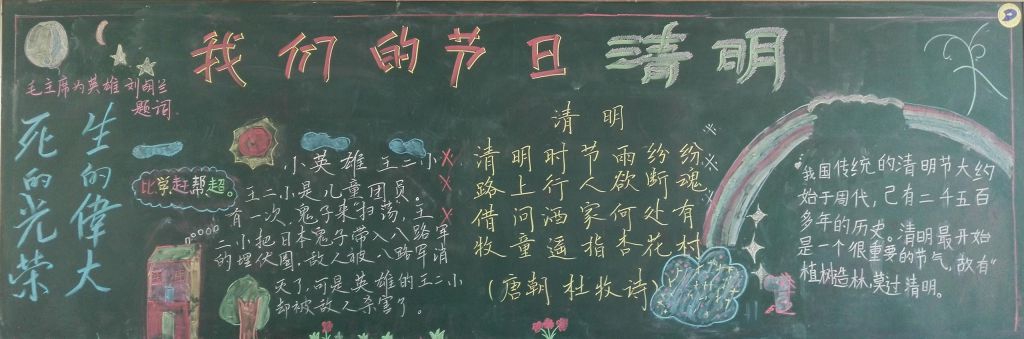 我们的节日清明
毛主席为英雄刘胡兰
题词
生的偉大
死的光荣
比学赶帮超。
小英雄王二小
王二小是儿童团员。
有一次,鬼子来扫荡,王
二小把日本鬼子带入八路军
的埋伏圈,敌人被八路军消
灭了,可是英雄的王二小
却被敌人杀害了。
清明
清明时节雨纷纷
路上行人欲断魂
借问酒家何处有
牧童遥指杏花村
(唐朝 杜牧诗)
我国传统的清明节大约
始于周代,已有二千五百
多年的历史。清明最开始
是一个很重要的节气,故有"
植树造林,莫过清明。